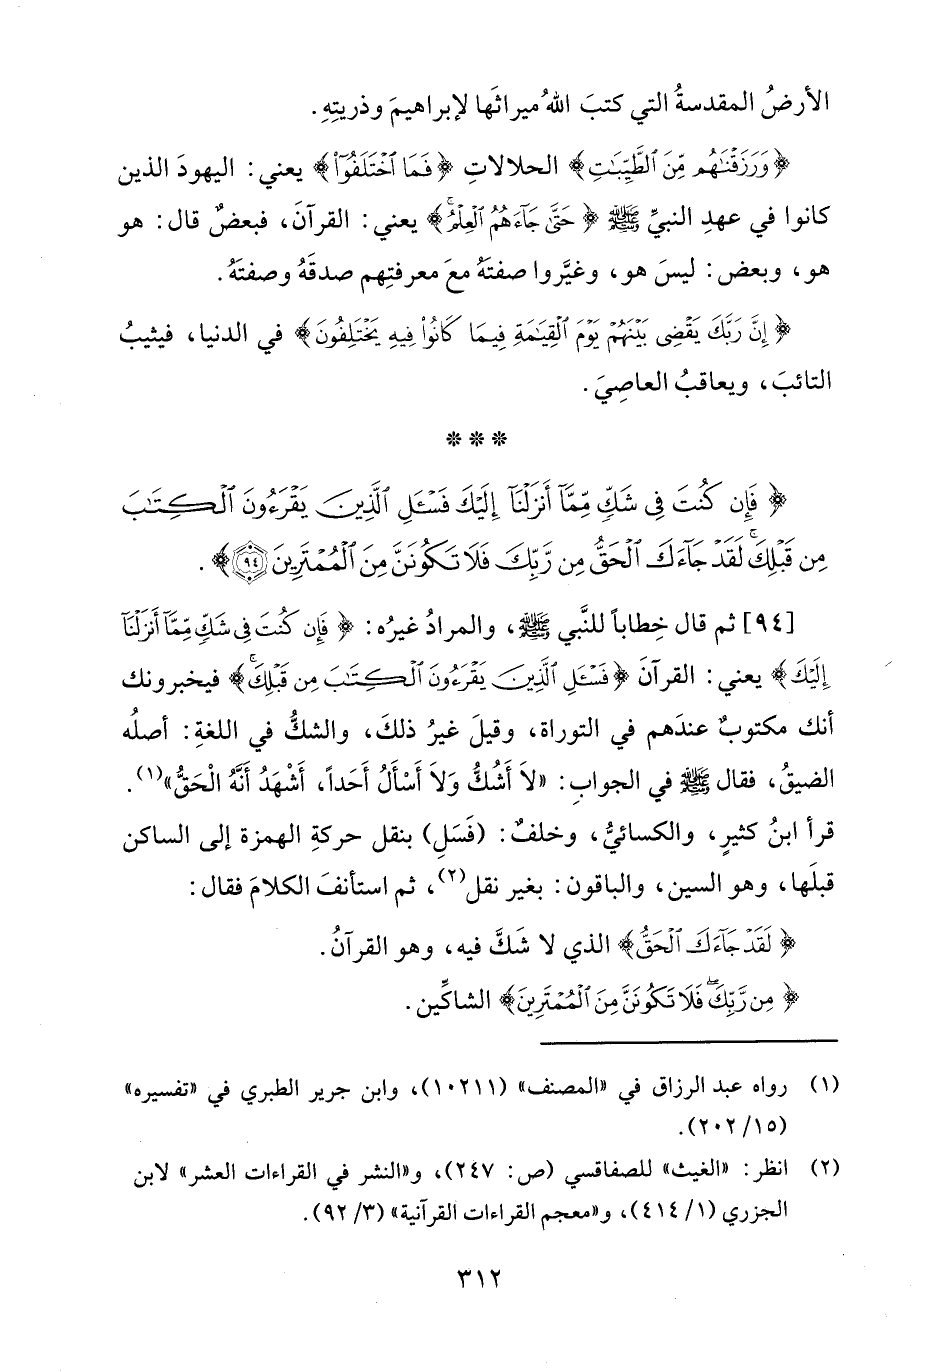 الأرضُ المقدسةُ التي كتبَ اللهُ ميراثَها لإبراهيمَ وذريتِهِ.
﴿وَرَزَقْنَٰهُم مِّنَ ٱلطَّيِّبَٰتِ﴾ الحلالاتِ ﴿فَمَا ٱخْتَلَفُوا۟﴾ يعني: اليهودَ الذين
كانوا في عهدِ النبيِّ ﷺ ﴿حَتَّىٰ جَآءَهُمُ ٱلْعِلْمُ﴾ يعني: القرآنَ، فبعضٌ قال: هو
هو، وبعض: ليسَ هو، وغيَّروا صفتَهُ معَ معرفتِهم صدقَهُ وصفتَهُ.
﴿إِنَّ رَبَّكَ يَقْضِى بَيْنَهُمْ يَوْمَ ٱلْقِيَٰمَةِ فِيمَا كَانُوا۟ فِيهِ يَخْتَلِفُونَ﴾ في الدنيا، فيثيبُ
التائبَ، ويعاقبُ العاصِيَ.
* * *
﴿فَإِن كُنتَ فِى شَكٍّ مِّمَّآ أَنزَلْنَآ إِلَيْكَ فَسْـَٔلِ ٱلَّذِينَ يَقْرَءُونَ ٱلْكِتَٰبَ
مِن قَبْلِكَ ۚ لَقَدْ جَآءَكَ ٱلْحَقُّ مِن رَّبِّكَ فَلَا تَكُونَنَّ مِنَ ٱلْمُمْتَرِينَ ٩٤﴾.
[٩٤] ثم قال خِطاباً للنَّبي ﷺ، والمرادُ غيرُه: ﴿فَإِن كُنتَ فِى شَكٍّ مِّمَّآ أَنزَلْنَآ
إِلَيْكَ﴾ يعني: القرآنَ ﴿فَسْـَٔلِ ٱلَّذِينَ يَقْرَءُونَ ٱلْكِتَٰبَ مِن قَبْلِكَ ۚ﴾ فيخبرونك
أنك مكتوبٌ عندَهم في التوراة، وقيلَ غيرُ ذلكَ، والشكُّ في اللغةِ: أصلُه
الضيقُ، فقال ﷺ في الجوابِ: «لاَ أَشُكُّ وَلاَ أَسْأَلُ أَحَداً، أَشْهَدُ أَنَّهُ الْحَقُّ»(١).
قرأ ابنُ كثيرٍ، والكسائيُّ، وخلفٌ: (فَسَلِ) بنقل حركةِ الهمزة إلى الساكن
قبلَها، وهو السين، والباقون: بغير نقل(٢)، ثم استأنفَ الكلامَ فقال:
﴿لَقَدْ جَآءَكَ ٱلْحَقُّ﴾ الذي لا شَكَّ فيه، وهو القرآنُ.
﴿مِن رَّبِّكَ ۖ فَلَا تَكُونَنَّ مِنَ ٱلْمُمْتَرِينَ﴾ الشاكِّين.
(١) رواه عبد الرزاق في «المصنف» (١٠٢١١)، وابن جرير الطبري في «تفسيره»
(١٥/ ٢٠٢).
(٢) انظر: «الغيث» للصفاقسي (ص: ٢٤٧)، و«النشر في القراءات العشر» لابن
الجزري (١/ ٤١٤)، و«معجم القراءات القرآنية» (٣/ ٩٢).
٣١٢